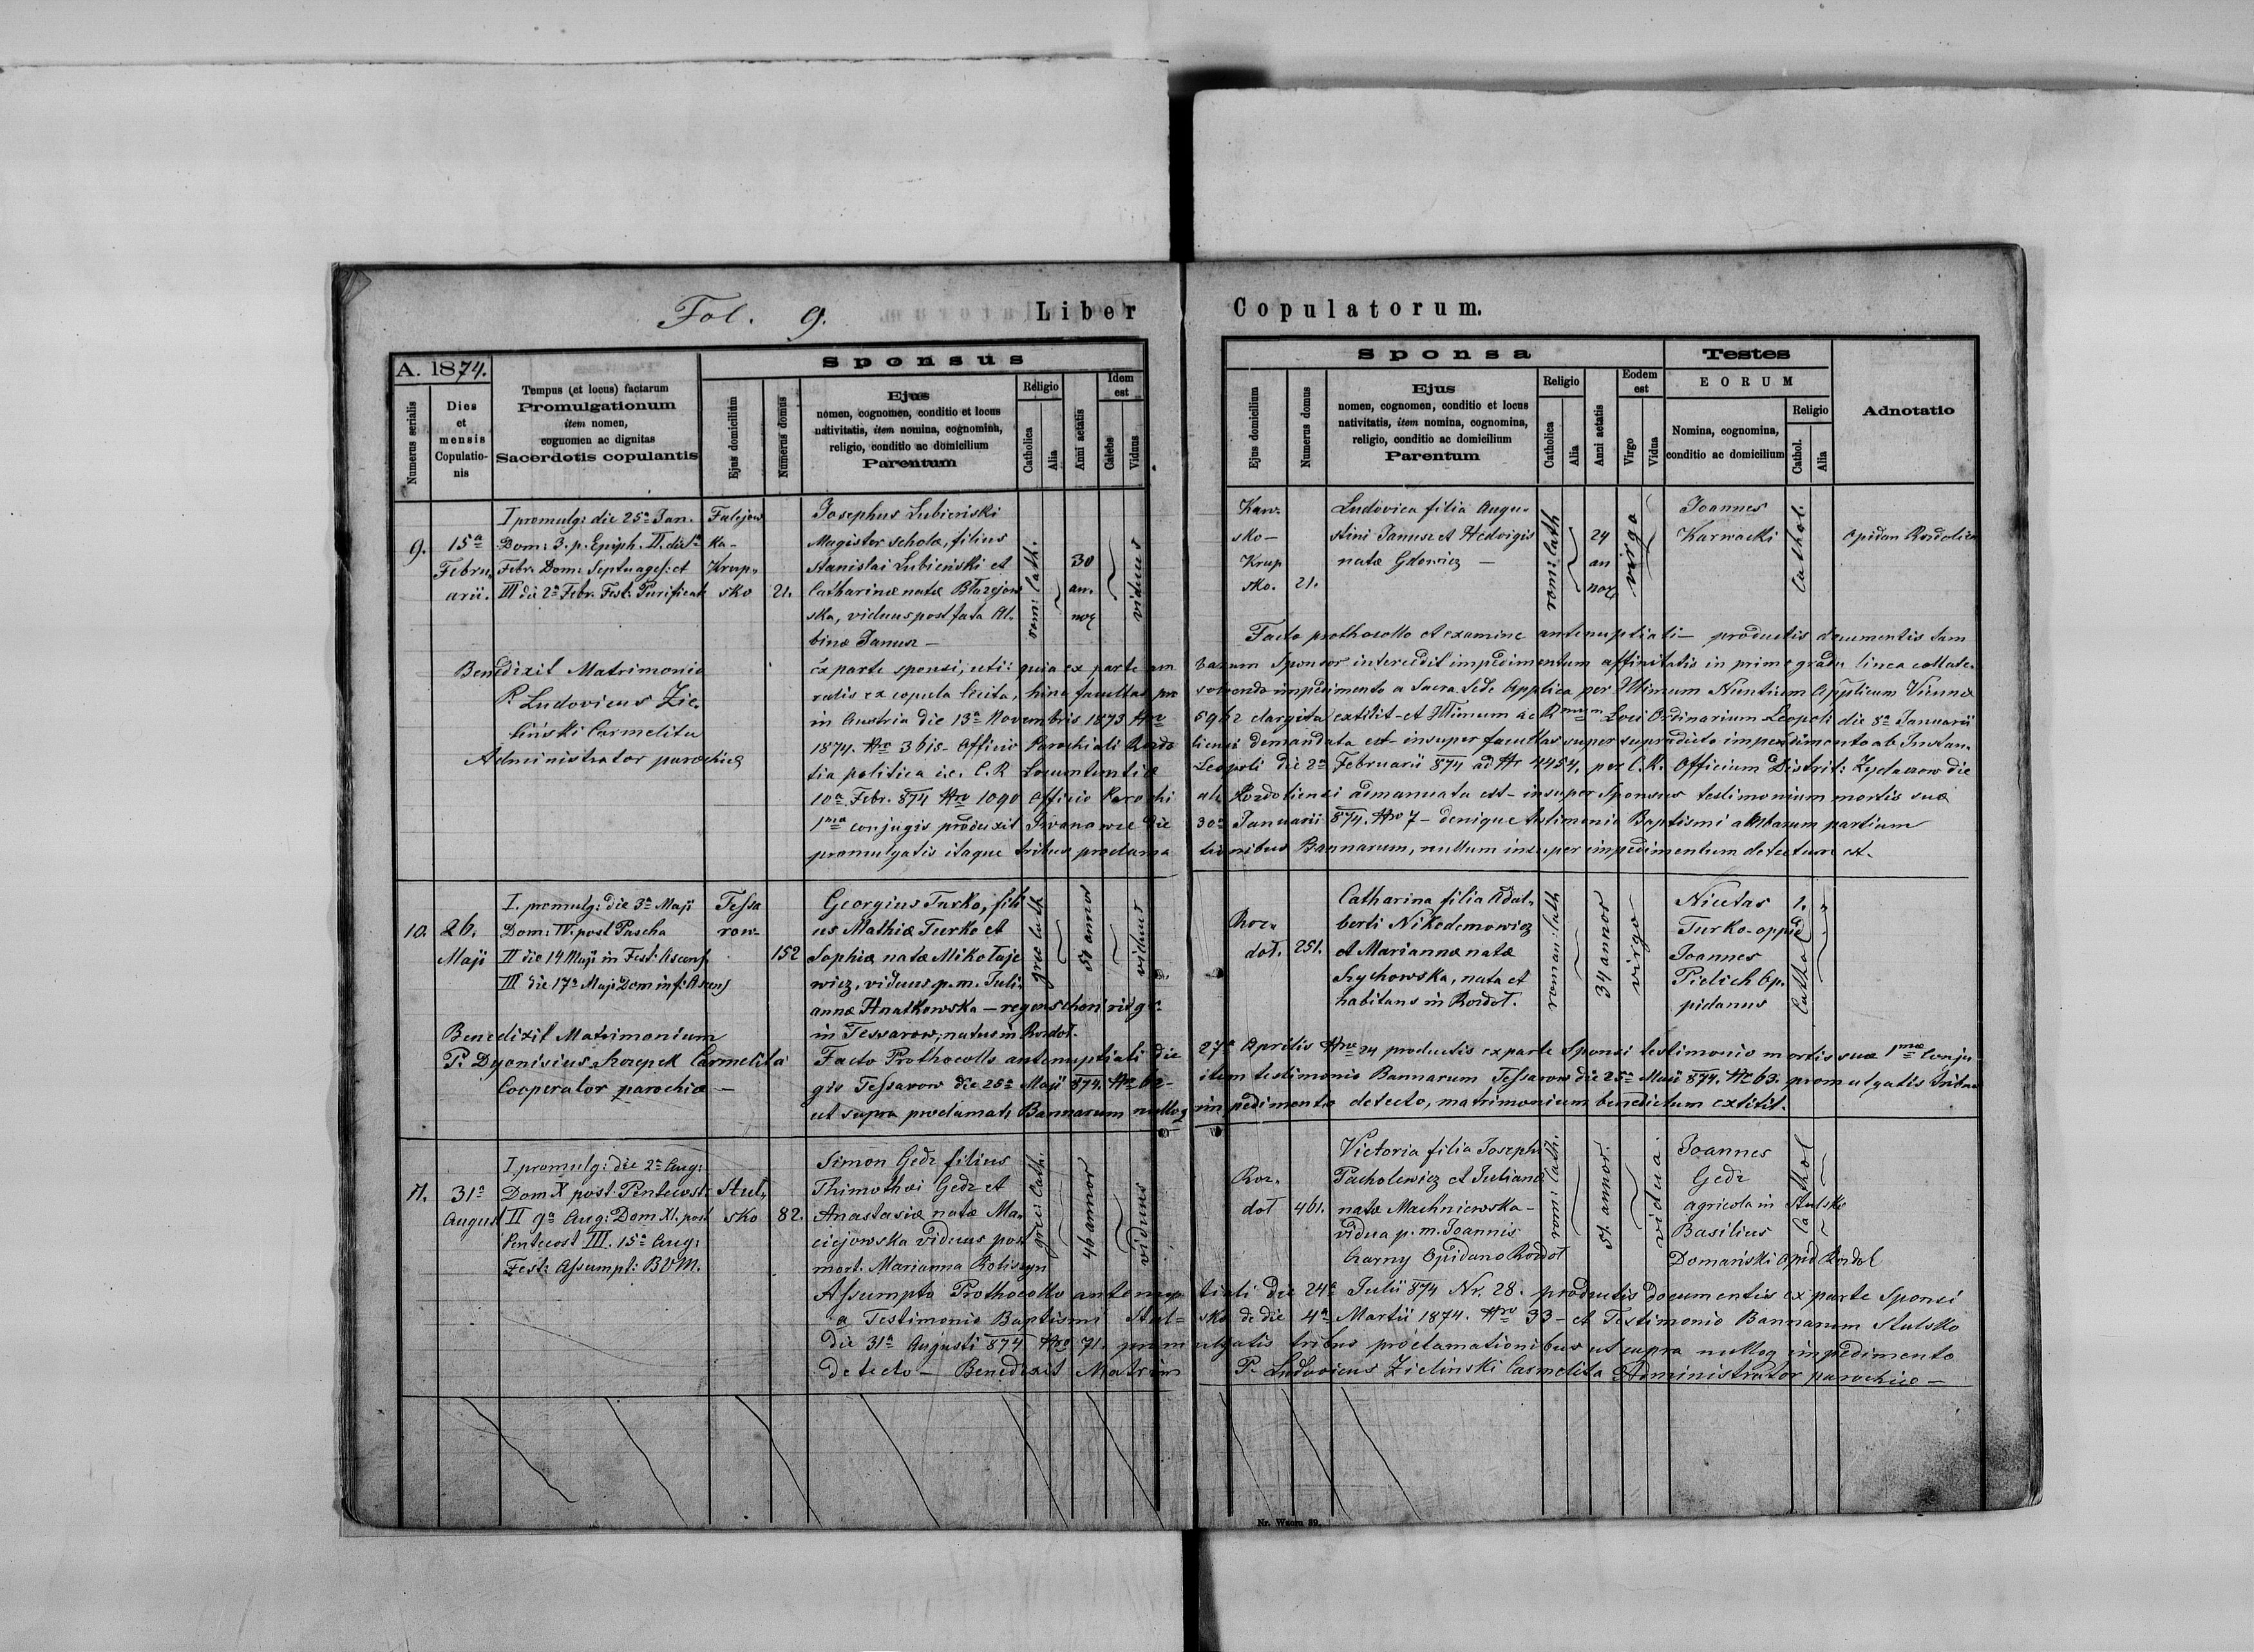 Fol. 9.
Liber Copulatorum.
A. 1874.
Numerus serialis
Dies et mensis Copulationis
Tempus (et locus) factarum
Promulgationum
item nomen,
cognomen ac dignitas
Sacerdotis copulantis
Sponsus
Ejus domicilium
Numerus domus
Ejus
nomen, cognomen, conditio et locus
nativitatis, item nomina, cognomina,
religio, conditio ac domicilium
Parentum
Religio
Catholica
Alia
Anni aetatis
Idem est
Caelebs
Viduus
Sponsa
Ejus domicilium
Numerus domus
Ejus
nomen, cognomen, conditio et locus
nativitatis, item nomina, cognomina,
religio, conditio ac domicilium
Parentum
Religio
Catholica
Alia
Anni aetatis
Eodem est
Virgo
Vidua
Testes
EORUM
Nomina, cognomina,
conditio ac domicilium
Religio
Cathol.
Alia
Adnotatio
9.
15ª
Febru
arii.
I promulg: die 25ª Jan.
Dom: 3. p. Epiph. II.
Febr. Dom: Septuages: et
III die 2ª Febr. Fest. Purificat
Falejow
ka-
Krup-
sko
21.
Josephus Lubieński
Magister schola, filius
Stanislai Lubieński et
Catharinæ natæ Błażejow
ska, viduus post fata Al-
binæ Janusz -
rom: cath.
30
an.
nor
viduus
Karw-
sko-
Krup
sko.
21.
Ludovica filia Augu-
stini Janusz et Hedvigis
natæ Gdowicz -
rom: cath
24
an
nor
virgo
Joannes
Karwacki
Cathol.
Benedixit Matrimonio
P. Ludovicus Zie-
liński Carmelita
Administrator parochiæ
Facto prothocollo et examine antenuptiali - productis documentis tam
ex parte sponsi, uti: quia ex parte am barum Sponsor intercedit impedimentum affinitatis in primo gradu linea collate-
ralis ex copula licita, hinc facultas pro impedimento a Sacra Sede Applica per Illimum Nuntium Applicum Viennæ
in Austria die 13ª Novembris 1873 Nro elargita extitit - et Illimum ac Rmum Loci Ordinarium Leopoli die 8ª Januarii
1874. Nro 3 bis - Officio Parochiali Rozdo liensi demandata est - insuper facultas super supradicto impedimento ab Instan-
tia politica i.e. C.R. Locumtentiæ Leopoli die 2ª Februarii 874 ad Nr 4454. per C.R. Officium District: Zydaczow die
10ª Febr. 874 Nro 1090 Officio Parochi ali Rozdoliensi admanuata est - insuper Sponsus testimonium mortis suæ
1mæ conjugis produxit Iwanowce die 30ª Januarii 874. Nro 7 - denique testimonia Baptismi ambarum partium
promulgatis itaque tribus proclama tionibus Bannarum, nullum insuper impedimentum detectum est.
10.
26.
Maji
I. promulg: die 3ª Maji
Dom: IV. post Pascha
II die 14 Maji in Fest: Ascens
III die 17ª Maji Dom inf: Ascens
Tessa
row-
152
Georgius Turko, fili
us Mathiæ Turko et
Sophiæ natæ Mikołaje
wicz, viduus p. m. Juli-
annæ Hnatkowska - regenschori rit gr:
in Tessarow, natus in Rozdoł.
51 annor
viduus
Roz-
doł.
251.
Catharina filia Adal-
berti Nikodemowicz
et Mariannæ natæ
Szychowska, nata et
habitans in Rozdoł.
roman: cath
34 annor
virgo
Nicetas
Turko - oppid
Joannes
Pielich Op-
pidanus
Cathol
Benedixit Matrimonium
P. Dyonisius Szczepek Carmelita
Cooperator parochiæ -
Facto Prothocollo antenuptiali die 27ª Aprilis Nro 24 productis ex parte Sponsi testimonio mortis suæ 1mæ Conju
gis Tessarow die 25ª Maji 874. Nro 62 - item testimonio Bannarum Tessarow die 25ª Maji 874. Nro 63. promulgatis tribus
ut supra proclamat: Bannarum nulloq impedimento detecto, matrimonium benedictum extitit.
11.
31ª
August
I. promulg: die 2ª Aug:
Dom X post Pentecost:
II 9ª Aug: Dom XI. post
Pentecost III. 15ª Aug:
Fest: Assumpt: BVM.
Stul-
sko
82.
Simon Gedz filius
Thimothei Gedz et
Anastasiæ natæ Ma-
ciejowska viduus post
mort. Marianna
græc: Cath.
46 annor
viduus
Roz-
doł
461.
Victoria filia Josephi
Pacholewicz et Julianæ
natæ Machniewska -
vidua p. m. Joannis
Czarny Opidano Rozdoł
rom: Cath.
51. annor.
vidua.
Joannes
Gedz
agricola in Stulsko
Basilius
Domański Opid Rozdol
Cathol
Assumpto Prothocollo antenup tiali die 24ª Julii 874 Nr. 28. productis documentis ex parte Sponsi
a Testimonio Baptismi Stul= sko de die 4ª Martii 1874. Nro 33 - et Testimonio Bannarum Stulsko
die 31ª Augusti 874 Nro 71. prom ulgatis tribus proclamationibus ut supra nulloq impedimento
detecto - Benedixit Matrim P. Ludovicus Zieliński Carmelita Administrator parochiæ -
Nr. Wzoru 89.